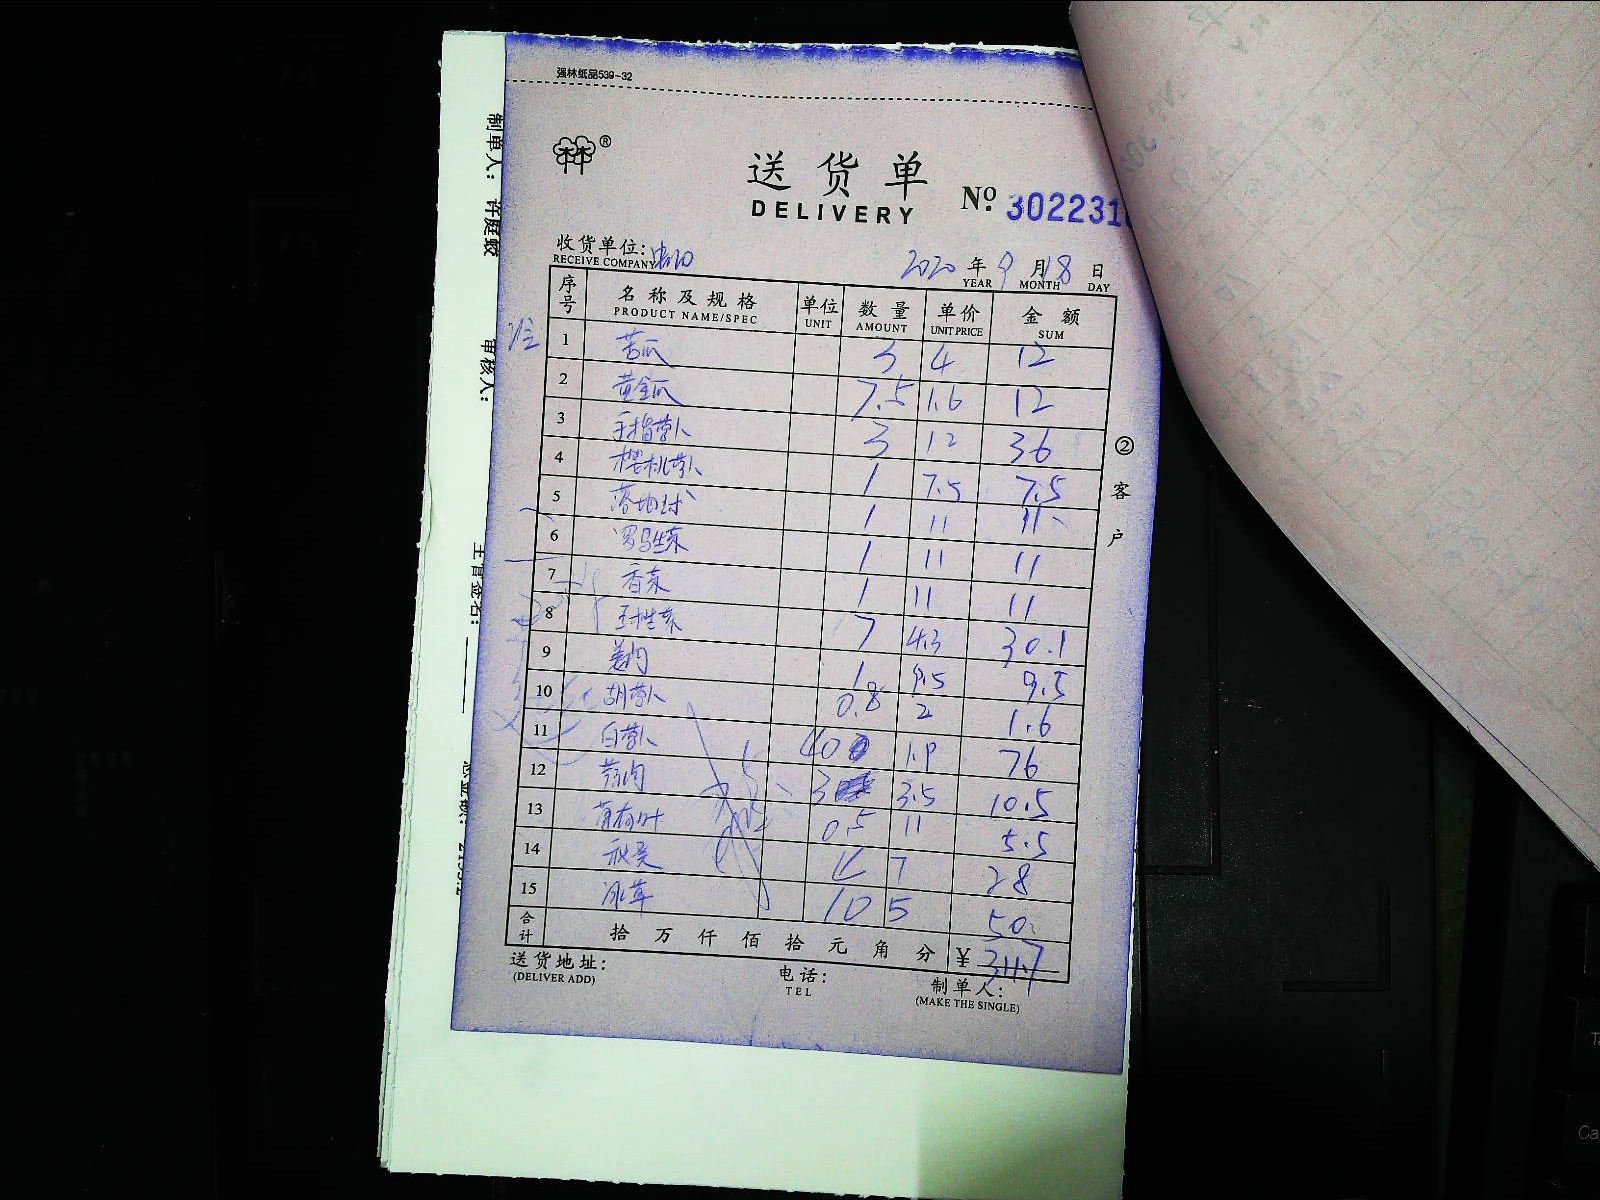 强林纸品539-32
®
送货单
DELIVERY
№ 302231
收货单位:
RECEIVE COMPANY
2020 年 9 月 18 日
YEAR MONTH DAY
序号 名称及规格 单位 数量 单价 金额
PRODUCT NAME/SPEC UNIT AMOUNT UNIT PRICE SUM
1 苦瓜 3 4 12
2 黄金瓜 7.5 1.6 12
3 手指萝卜 3 12 36
4 樱桃萝卜 1 7.5 7.5
5 1 11 11
6 罗马生菜 1 11 11
7 香菜 1 11 11
8 7 4.3 30.1
9 姜肉 1 9.5 9.5
10 胡萝卜 0.8 2 1.6
11 白萝卜 40 1.9 76
12 3 3.5 10.5
13 0.5 11 5.5
14 秋葵 4 7 28
15 冰草 10 5 50
合计 拾 万 仟 佰 拾 元 角 分 ¥ 311.7
送货地址:
(DELIVER ADD)
电话:
TEL
制单人:
(MAKE THE SINGLE)
②客户
制单人: 许庭蛟
审核人:
主管签名: